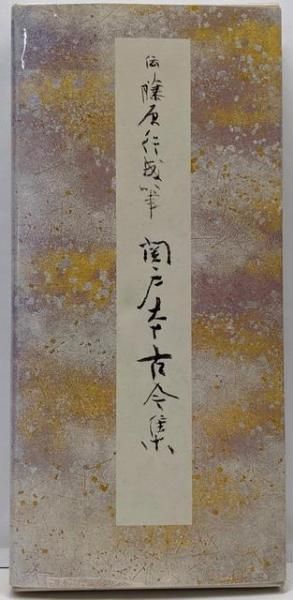 伝 藤原行成筆 関戸本古今集